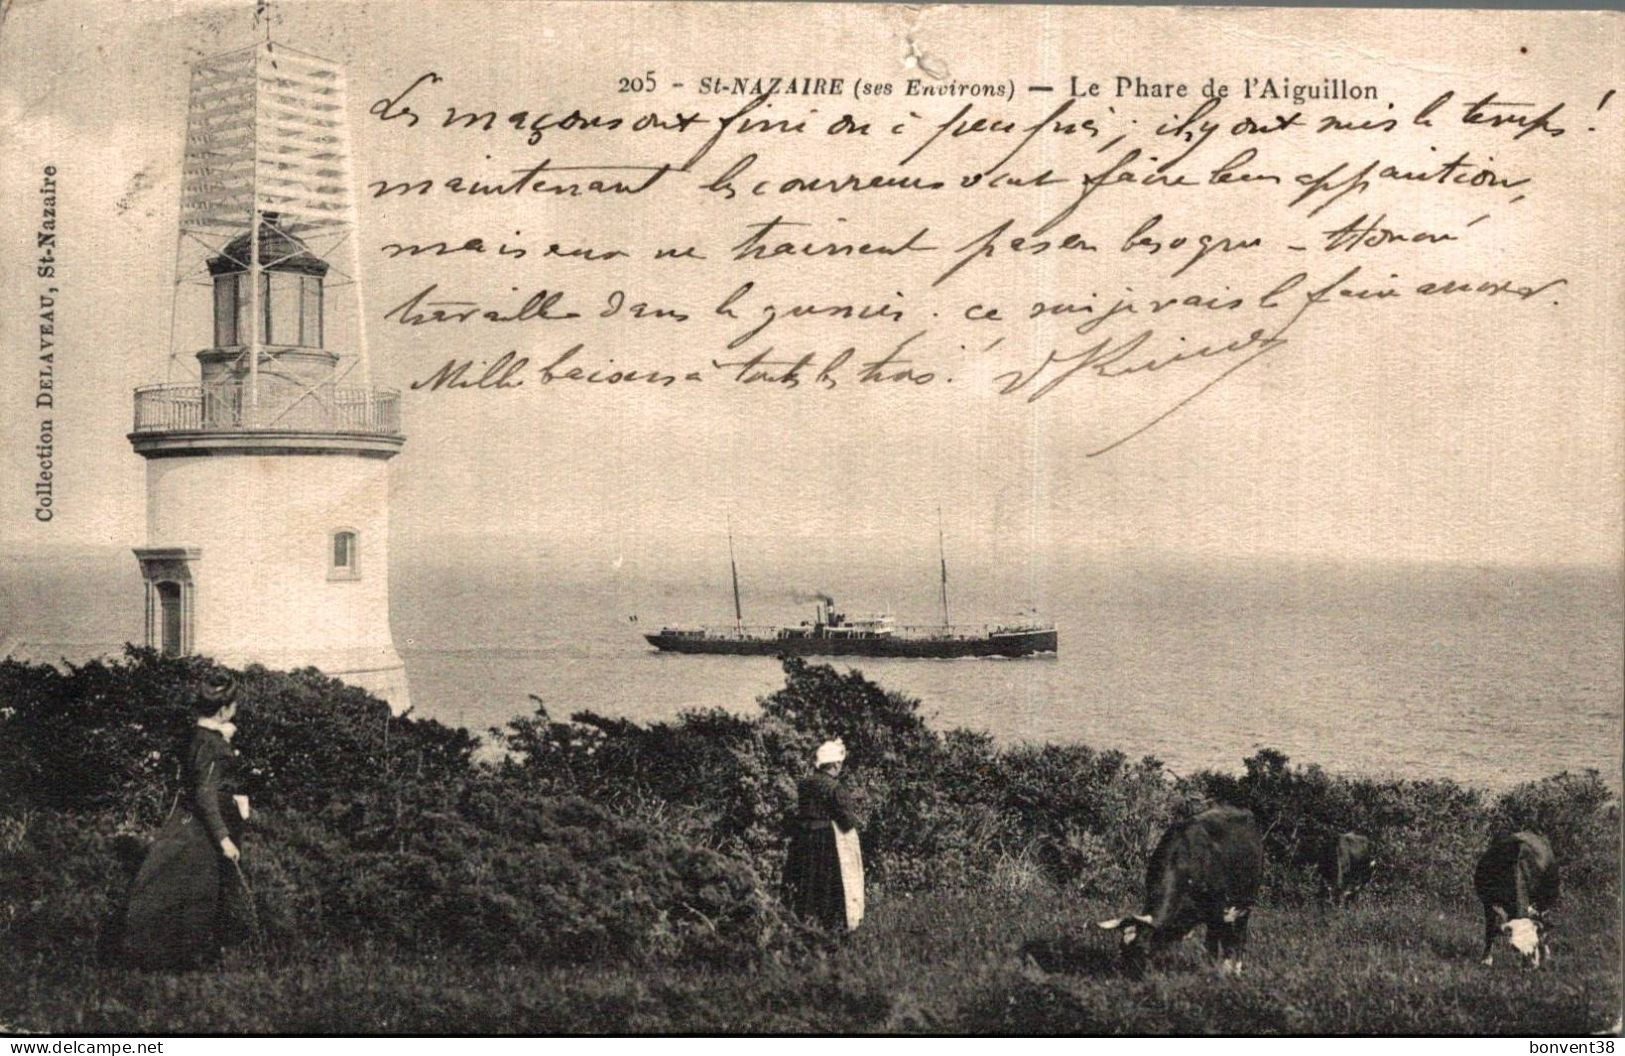 205 - St-NAZAIRE (ses Environs) — Le Phare de l'Aiguillon
Les maçons ont fini ou à peu près; ils y ont mis le temps!
maintenant les couvreurs vont faire leur apparition,
mais eux ne trainent pas en besogne - Honoré
travaille dans le grenier. ce soir je vais le faire
Mille baisers à toutes les trois.
Collection DELAVEAU, St-Nazaire
bonvent38